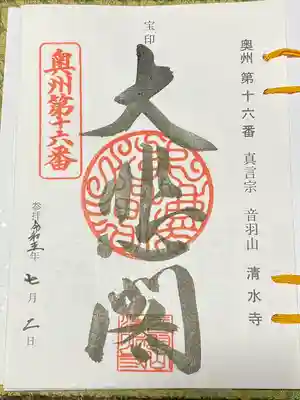 奥州 第十六番 真言宗 音羽山 清水寺
宝印
大悲閣
奥州第十六番
参拝 令和五年 七月二日